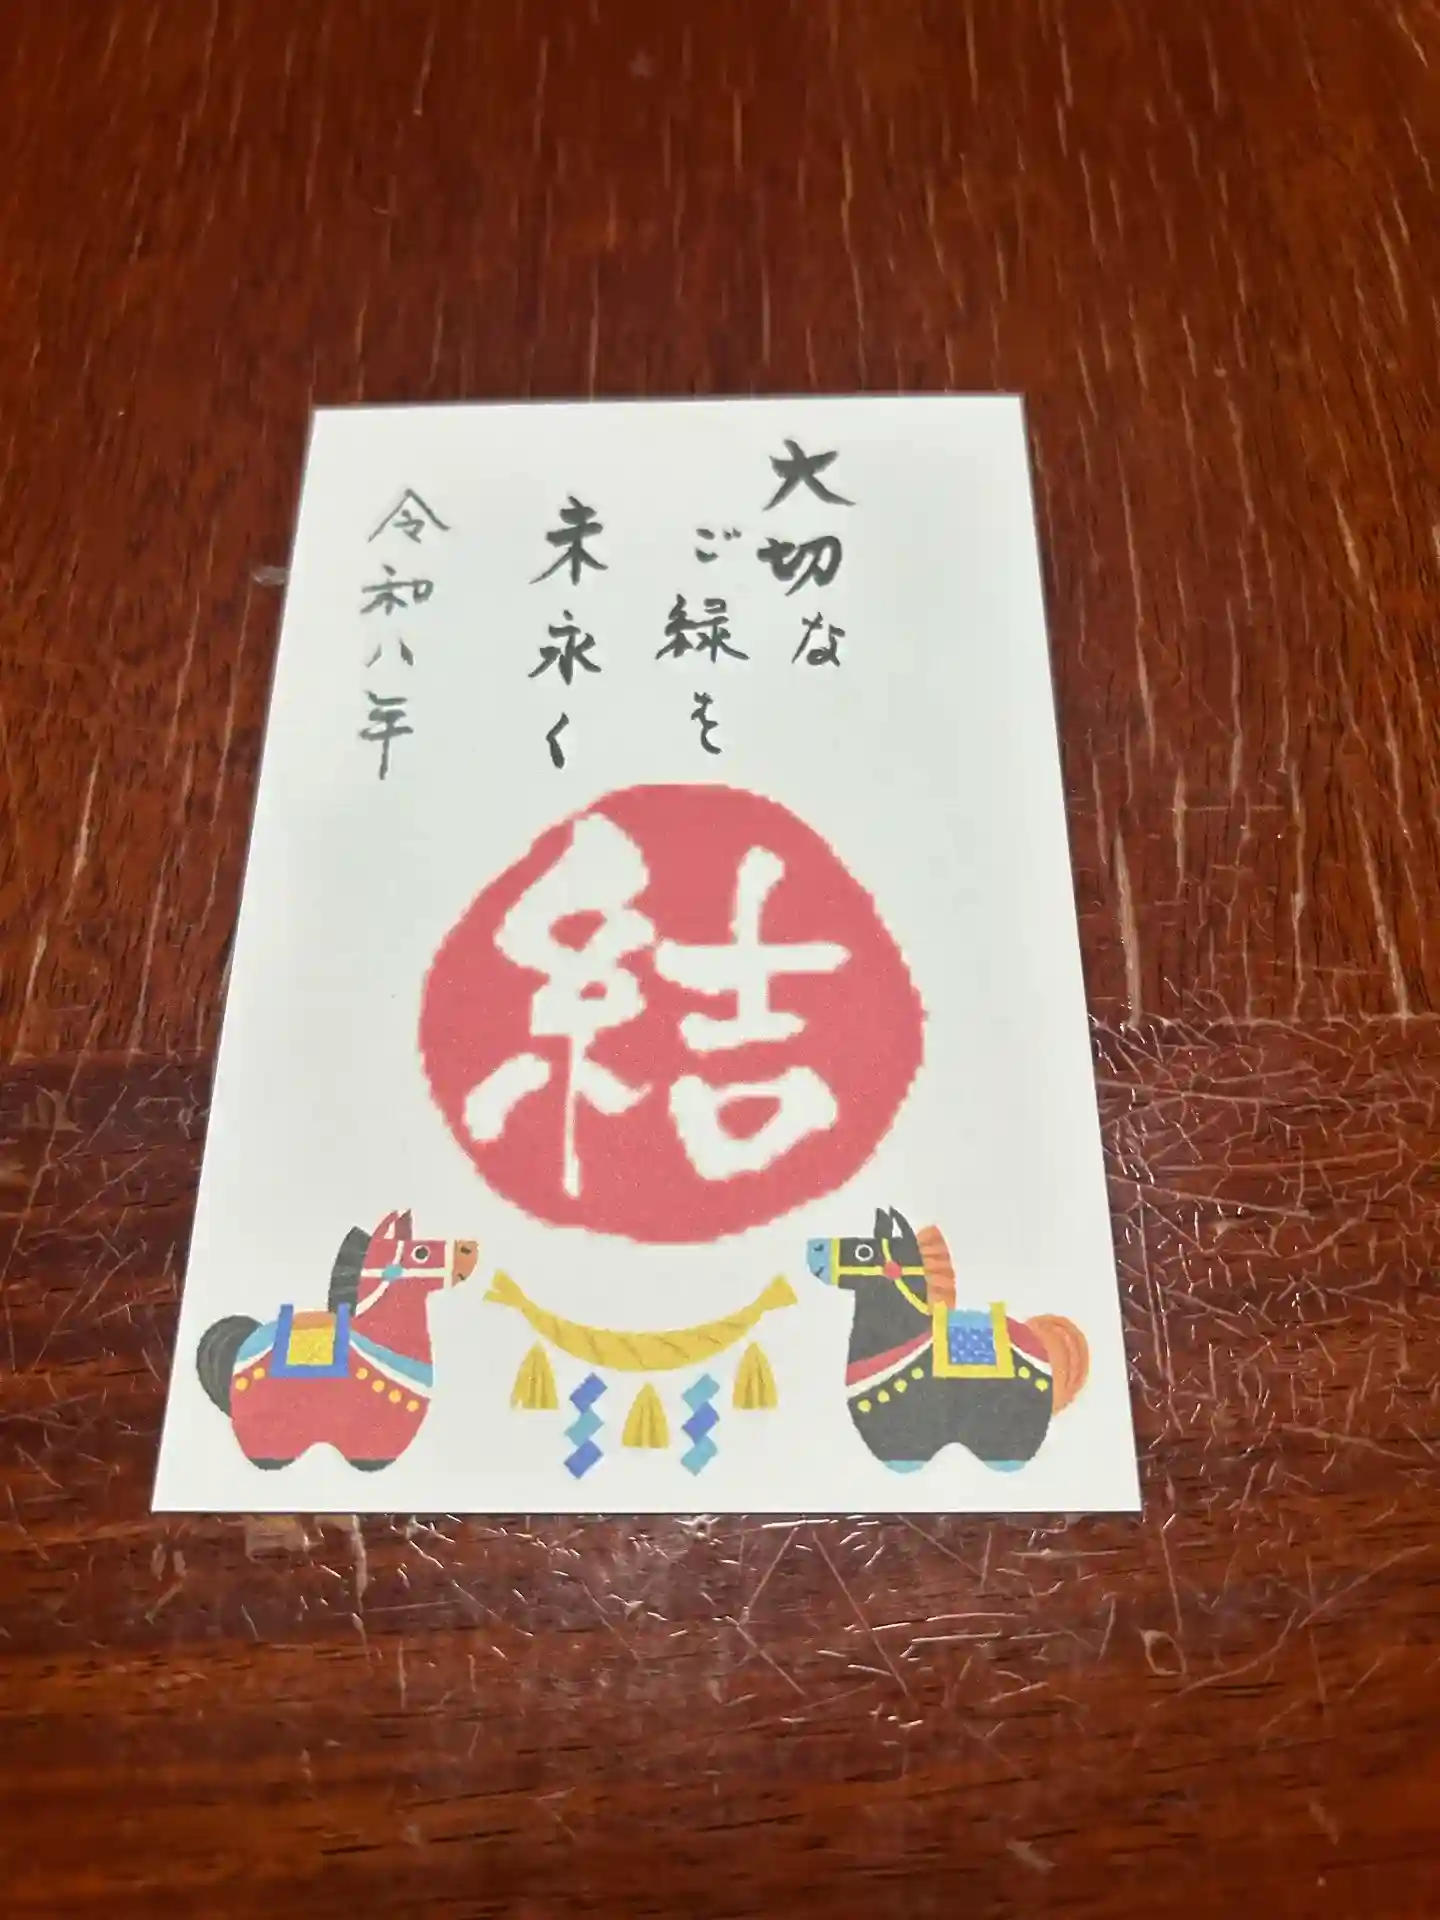 大切な
ご縁を
未永く
令和八年
結